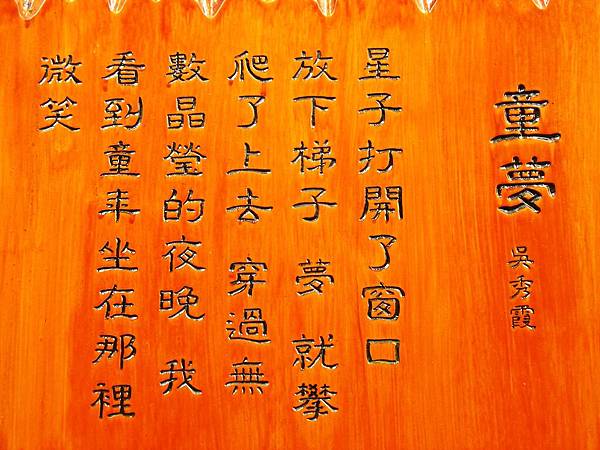 童夢
吳秀霞
星子打開了窗口
放下梯子 夢 就攀
爬了上去 穿過無
數晶瑩的夜晚 我
看到童年坐在那裡
微笑